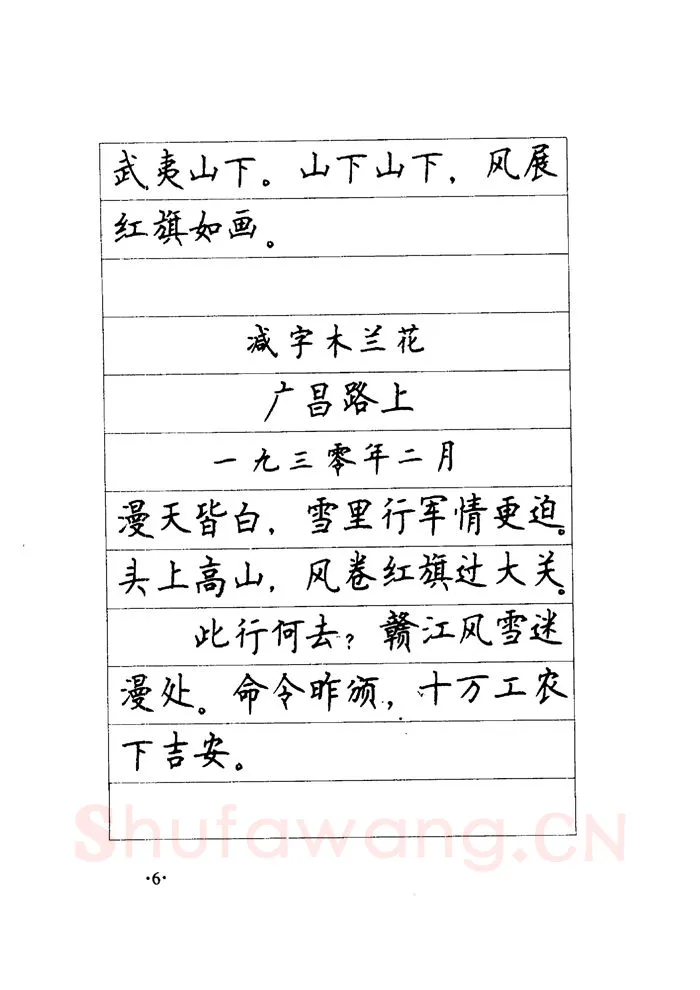 武夷山下。山下山下，风展
红旗如画。
减字木兰花
广昌路上
一九三零年二月
漫天皆白，雪里行军情更迫。
头上高山，风卷红旗过大关。
此行何去？赣江风雪迷
漫处。命令昨颁，十万工农
下吉安。
Shufawang.CN
·6·